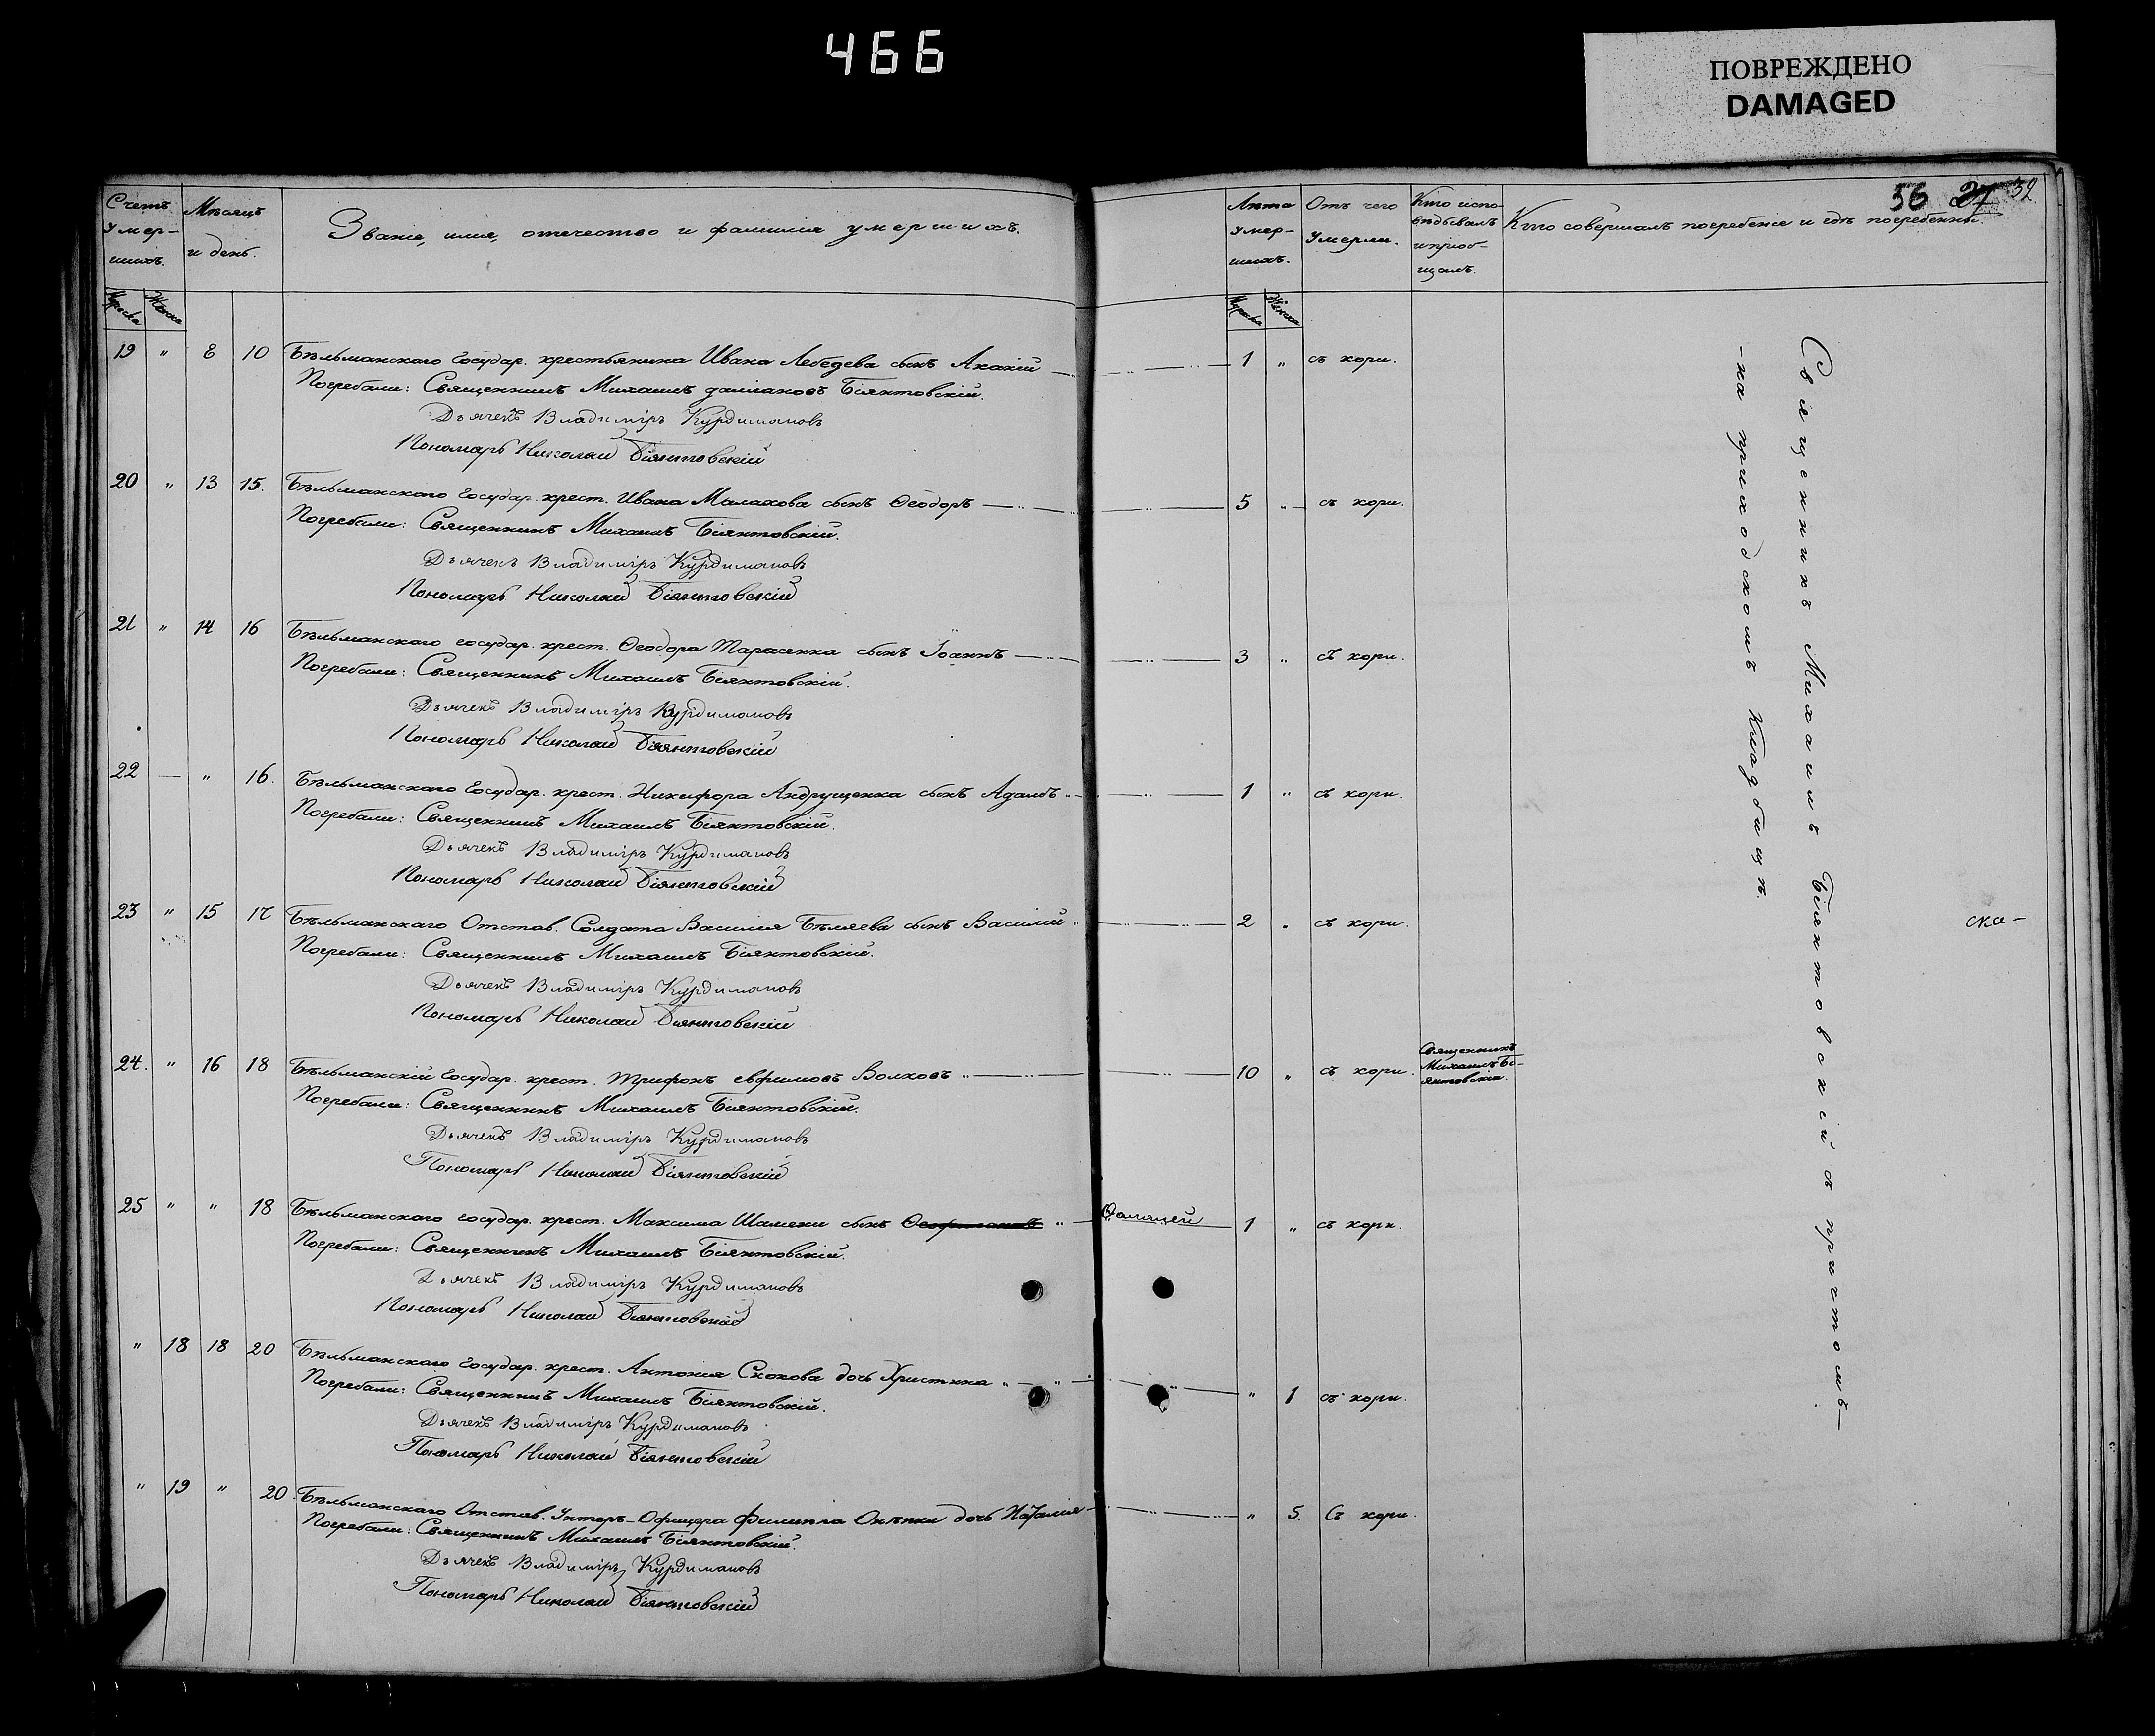 466
ПОВРЕЖДЕНО
DAMAGED
56 27 39
Счетъ умер-шихъ.
Мѣсяцъ и день.
Званіе, имя, отечество и фамилія умершихъ.
Лѣта умер-шихъ.
Отъ чего умерли.
Кто испо-вѣдывалъ и пріоб-щалъ.
Кто совершалъ погребеніе и гдѣ погребены.
Мужска Женска
Мужска Женска
19 " 8 10 Бѣльманскаго Государ. крестьянина Ивана Лебедева сынъ Акакій 1 " съ кори.
Погребали: Священникъ Михаилъ Даміановъ Біянтовскій.
Дьячекъ Владиміръ Курдимановъ
Пономарь Николай Біянтовскій
20 " 13 15. Бѣльманскаго Государ. крест. Ивана Малахова сынъ Ѳеодоръ 5 " съ кори.
Погребали: Священникъ Михаилъ Біянтовскій.
Дьячекъ Владиміръ Курдимановъ
Пономарь Николай Біянтовскій
21 " 14 16 Бѣльманскаго государ. крест. Ѳеодора Тарасенка сынъ Іоаннъ 3 " съ кори.
Погребали: Священникъ Михаилъ Біянтовскій.
Дьячекъ Владиміръ Курдимановъ
Пономарь Николай Біянтовскій
22 — " 16. Бѣльманскаго Государ. крест. Никифора Андрущенка сынъ Адамъ 1 " съ кори.
Погребали: Священникъ Михаилъ Біянтовскій.
Дьячекъ Владиміръ Курдимановъ
Пономарь Николай Біянтовскій
23 " 15 17 Бѣльманскаго Отстав. Солдата Василія Бѣляева сынъ Василій 2 " съ кори.
Погребали: Священникъ Михаилъ Біянтовскій.
Дьячекъ Владиміръ Курдимановъ
Пономарь Николай Біянтовскій
24. " 16 18 Бѣльманскій Государ. крест. Трифонъ евфимовъ Волковъ 10 " съ кори. Священникъ Михаилъ Бі-янтовскій.
Погребали: Священникъ Михаилъ Біянтовскій.
Дьячекъ Владиміръ Курдимановъ
Пономарь Николай Біянтовскій
25 " " 18 Бѣльманскаго государ. крест. Максима Шамеки сынъ 1 " съ кори.
Погребали: Священникъ Михаилъ Біянтовскій.
Дьячекъ Владиміръ Курдимановъ
Пономарь Николай Біянтовскій
" 18 18 20 Бѣльманскаго Государ. крест. Антонія Скокова дочь Христина " 1 съ кори.
Погребали: Священникъ Михаилъ Біянтовскій.
Дьячекъ Владиміръ Курдимановъ
Пономарь Николай Біянтовскій
" 19 " 20 Бѣльманскаго Отстав. Унтеръ-Офицера Филиппа дочь Наталія " 5. Съ кори.
Погребали: Священникъ Михаилъ Біянтовскій.
Дьячекъ Владиміръ Курдимановъ
Пономарь Николай Біянтовскій
Священникъ Михаилъ Біянтовскій съ причтомъ—
-на приходскомъ Кладбищѣ.
ска-